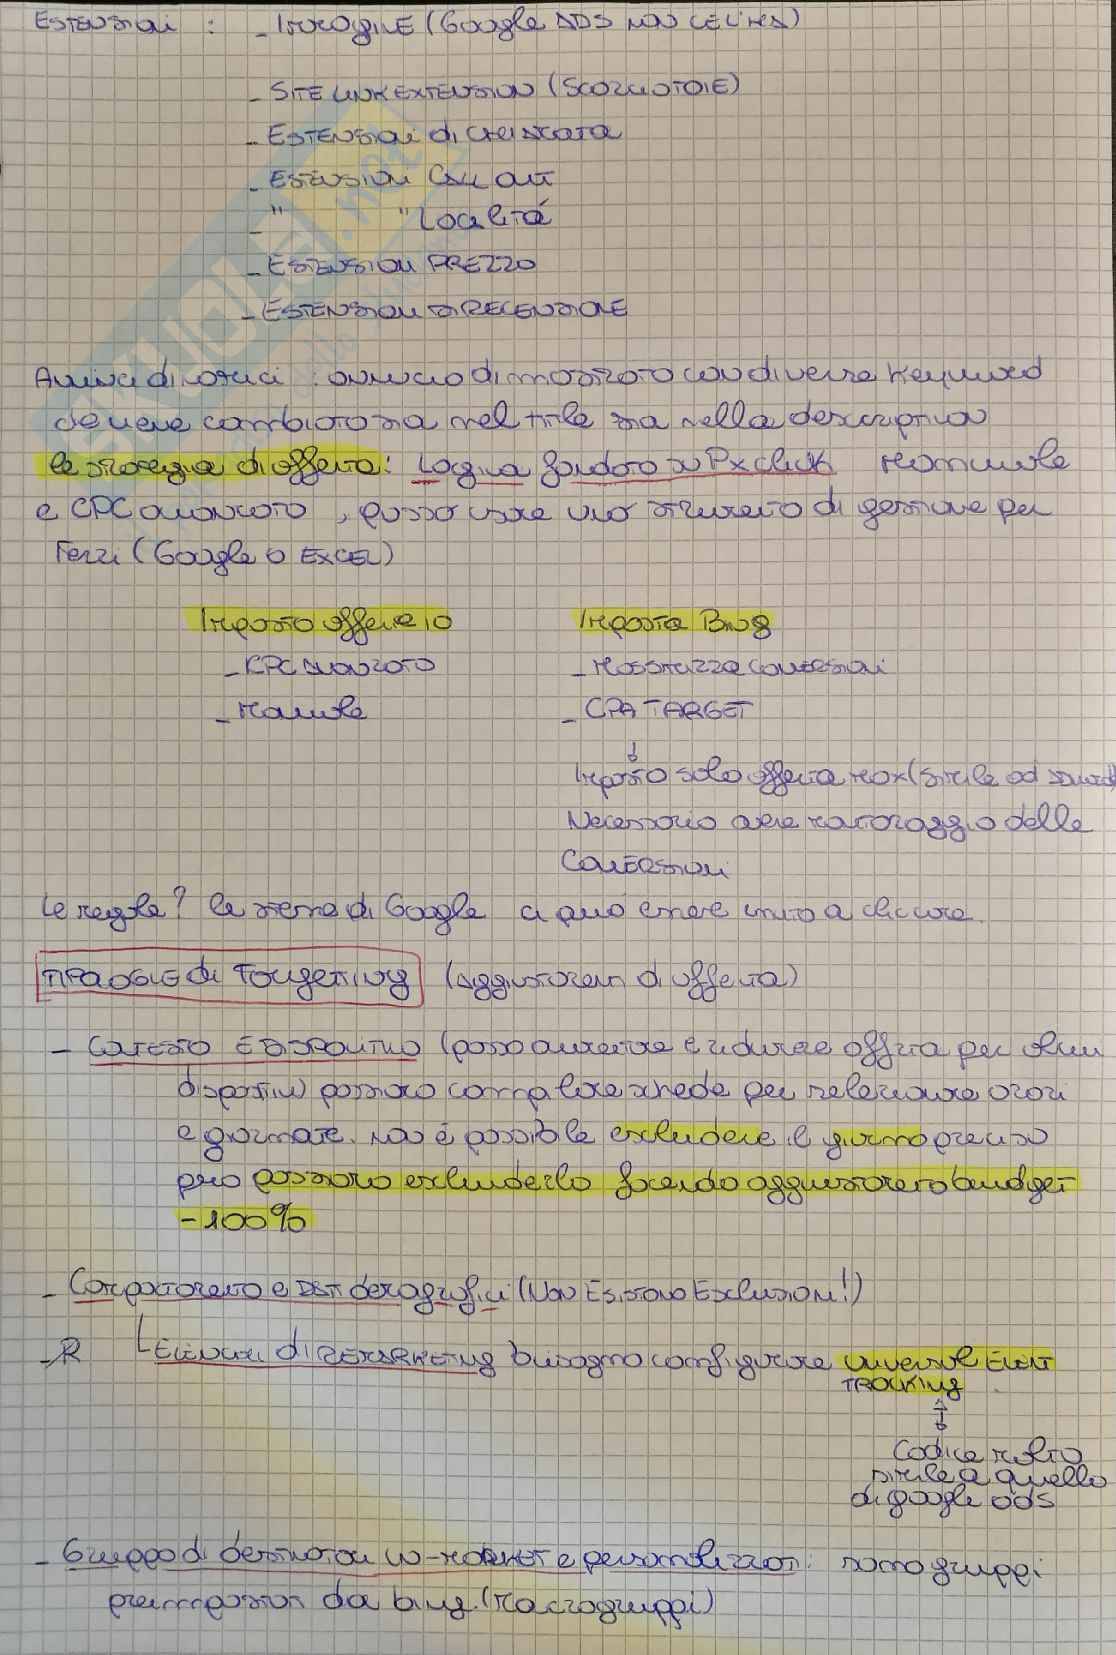 ESTENSIONI : - IMMAGINE (Google ADS NON CE L'HA)
- SITE LINK EXTENSION (SCORCIATOIE)
- ESTENSIONI di CHIAMATA
- ESTENSIONI CALL OUT
- " " Località
- ESTENSIONI PREZZO
- ESTENSIONI DI RECENSIONE
Annunci dinamici : annuncio dimostrato con diverse Keyword
deve cambiato sia nel title sia nella description
le strategia di offerta: Logica fondata su P x click manuale
e CPC avanzato, posso usare uno strumento di gestione per
Terzi (Google o EXCEL)
Imposto offerte io
Imposta Bing
- CPC AVANZATO
- Massimizza conversioni
- Manuale
- CPA TARGET
Imposto solo offerta max (simile ad
Necessario avere monitoraggio delle
CONVERSIONI
Le regole? le stesse di Google ci può essere invito a cliccare.
TIPOLOGIE di Targeting (Aggiustamenti di offerta)
- CONTESTO E DISPOSITIVO (posso aumentare e ridurre offerta per alcuni
dispositivi) possono compilare scheda per selezionare orari
e giornate. NON è possibile escludere il giorno preciso
però possono escluderlo facendo aggiustamento budget
-100%
- Comportamento e DATI demografici (Non Esistono Esclusioni!)
- R Elenchi di REMARKETING bisogna configurare universal EVENT
TRACKING
Codice molto
simile a quello
di google ads
- Gruppo di destinatari in-MARKET e personalizzati: sono gruppi
preimpostati da bing. (Macrogruppi)
SKUOLA.net